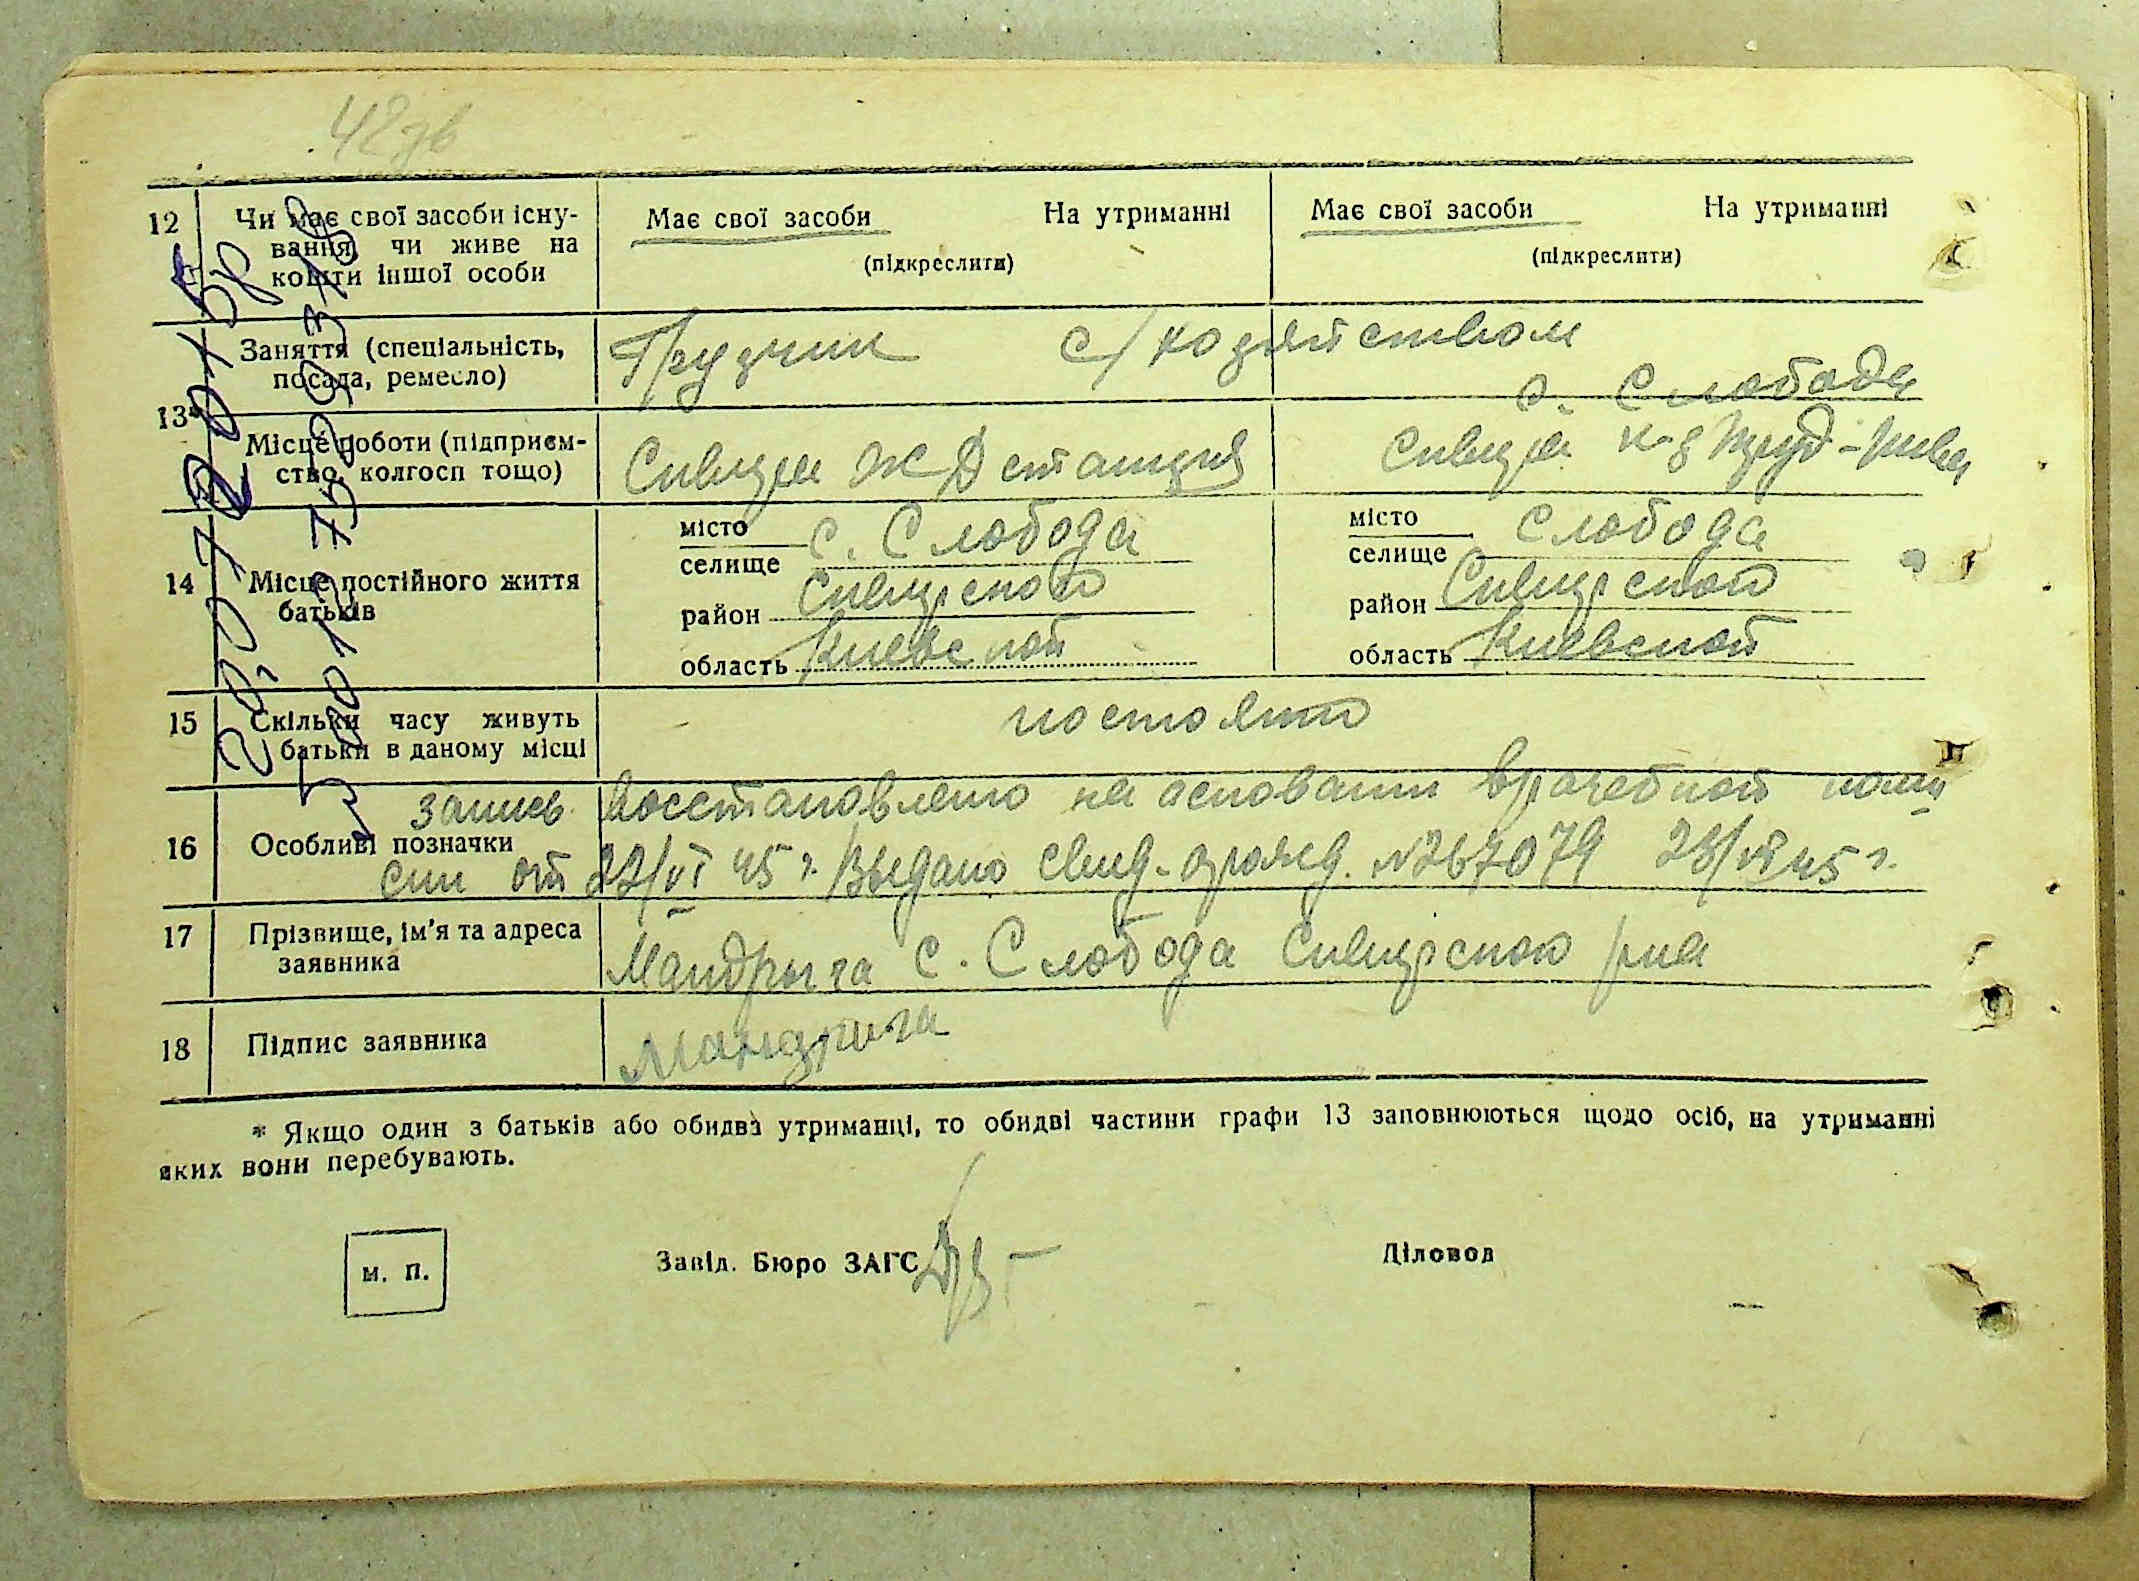 42зв
12 Чи має свої засоби існу-
вання, чи живе на
кошти іншої особи
Має свої засоби На утриманні
(підкреслити)
Має свої засоби На утриманні
(підкреслити)
13*
Заняття (спеціальність,
посада, ремесло)
Грузчик с/хозяйством
Місце роботи (підприєм-
ство, колгосп тощо)
ЖД станция
с. Слобода
14 Місце постійного життя
батьків
місто
селище с. Слобода
район
область Киевской
місто
селище Слобода
район
область Киевской
15 Скільки часу живуть
батьки в даному місці
постоянно
16 Особливі позначки
запись восстановлено на основании врачебной комис
сии от 22/VI 45 г. Выдано свид. о рожд. №267079 45 г.
17 Прізвище, ім'я та адреса
заявника
Мандрыга с. Слобода р-на
18 Підпис заявника
Мандрига
* Якщо один з батьків або обидва утриманці, то обидві частини графи 13 заповнюються щодо осіб, на утриманні
яких вони перебувають.
м. п.
Завід. Бюро ЗАГС
Діловод